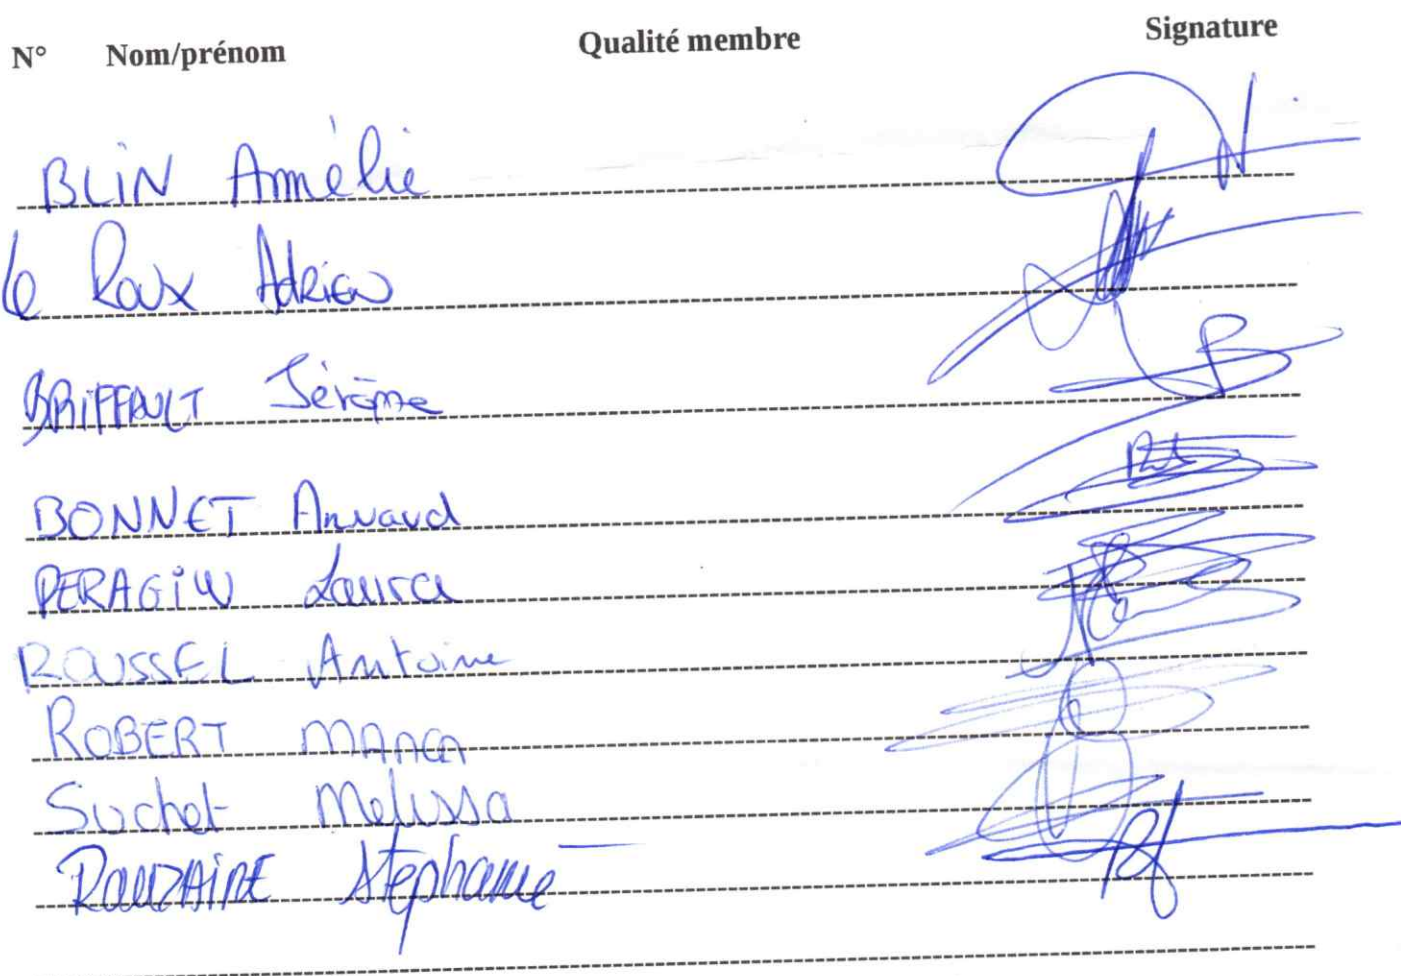 N° Nom/prénom Qualité membre Signature
BLIN Amélie
Le Roux Adrien
BRIFFAULT Jérôme
BONNET Arnaud
PERAGIN Laura
ROUSSEL Antoine
ROBERT
Suchet Melissa
RAUZAIRE Stéphanie